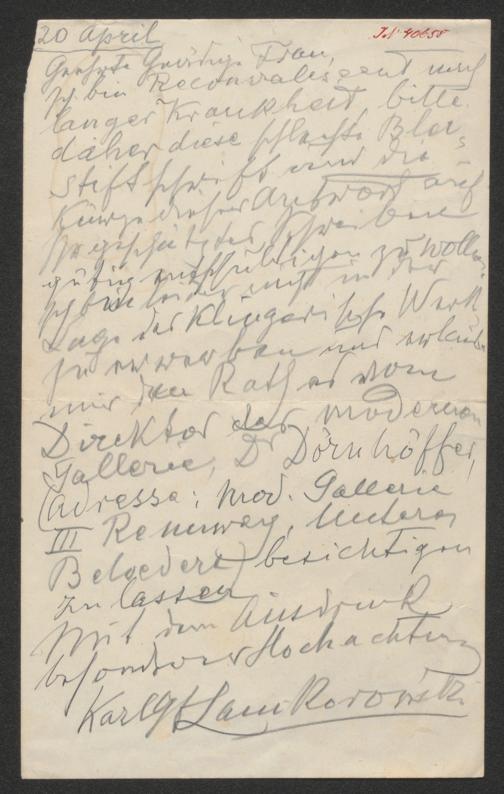 20 April
J.N. 40658
Geehrte Gnädige Frau,
Ich bin Reconvalescent nach
langer Krankheit, bitte
daher diese schlechte Blei-
stiftschrift und die
Kürze dieser Antwort auf
Ihr geschätztes Schreiben
gütig entschuldigen zu wollen.
Ich bin leider nicht in der
Lage das Klingerische Werk
zu erwerben und erlaube
mir den Rath es vom
Direktor der modernen
Gallerie, Dr Dörnhöffer,
(Adresse: Mod. Gallerie
III Rennweg, Unteres
Belvedere) besichtigen
zu lassen
Mit dem Ausdruck
besonderer Hochachtung
Karl Gf Lanckoroński